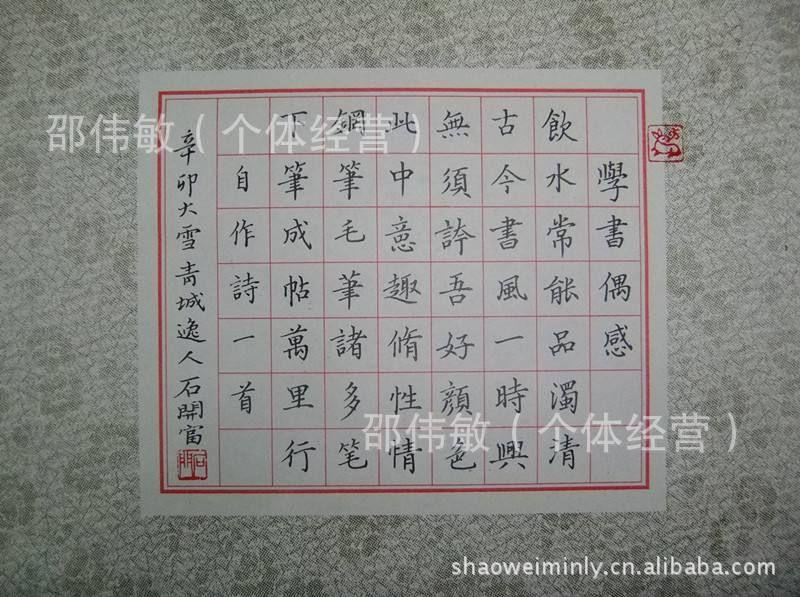 學書偶感
飲水常能品濁清
古今書風一時興
無須誇吾好顏色
此中意趣脩性情
鋼筆毛筆諸多笔
下筆成帖萬里行
自作詩一首
辛卯大雪青城逸人石開富
邵伟敏（个体经营）
邵伟敏（个体经营）
shaoweiminly.cn.alibaba.com